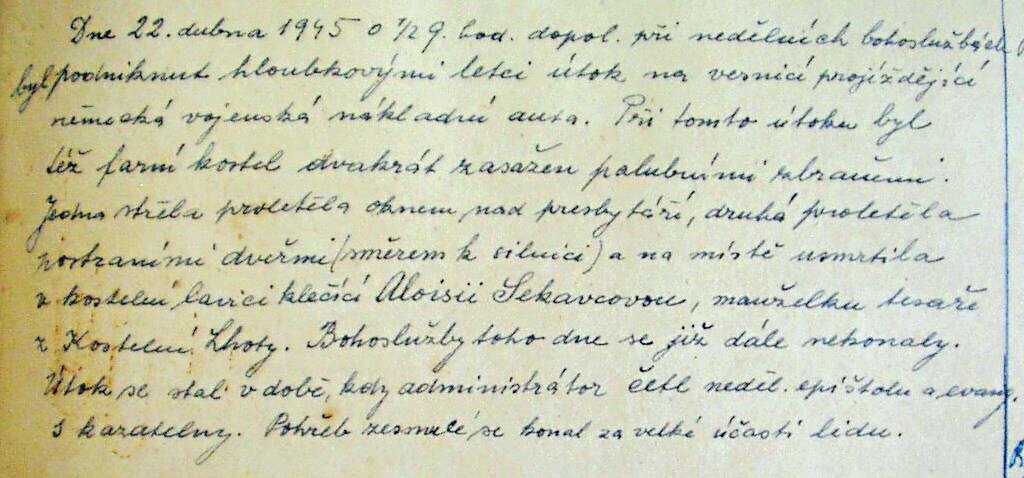 Dne 22. dubna 1945 o 1/2 9. hod. dopol. při nedělních bohoslužbách
byl podniknut hloubkovými letci útok na vesnicí projíždějící
německá vojenská nákladní auta. Při tomto útoku byl
též farní kostel dvakrát zasažen palubními zbraněmi.
Jedna střela proletěla oknem nad presbytáří, druhá proletěla
postraními dveřmi (směrem k silnici) a na místě usmrtila
v kostelní lavici klečící Aloisii Sekavcovou, manželku tesaře
z Kostelní Lhoty. Bohoslužby toho dne se již dále nekonaly.
Útok se stal v době, kdy administrátor četl neděl. epištolu a evang.
s kazatelny. Pohřeb zesnulé se konal za velké účasti lidu.